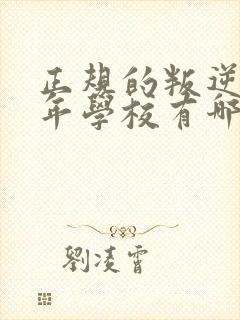 正規的叛逆
年學校有哪
劉凌霄